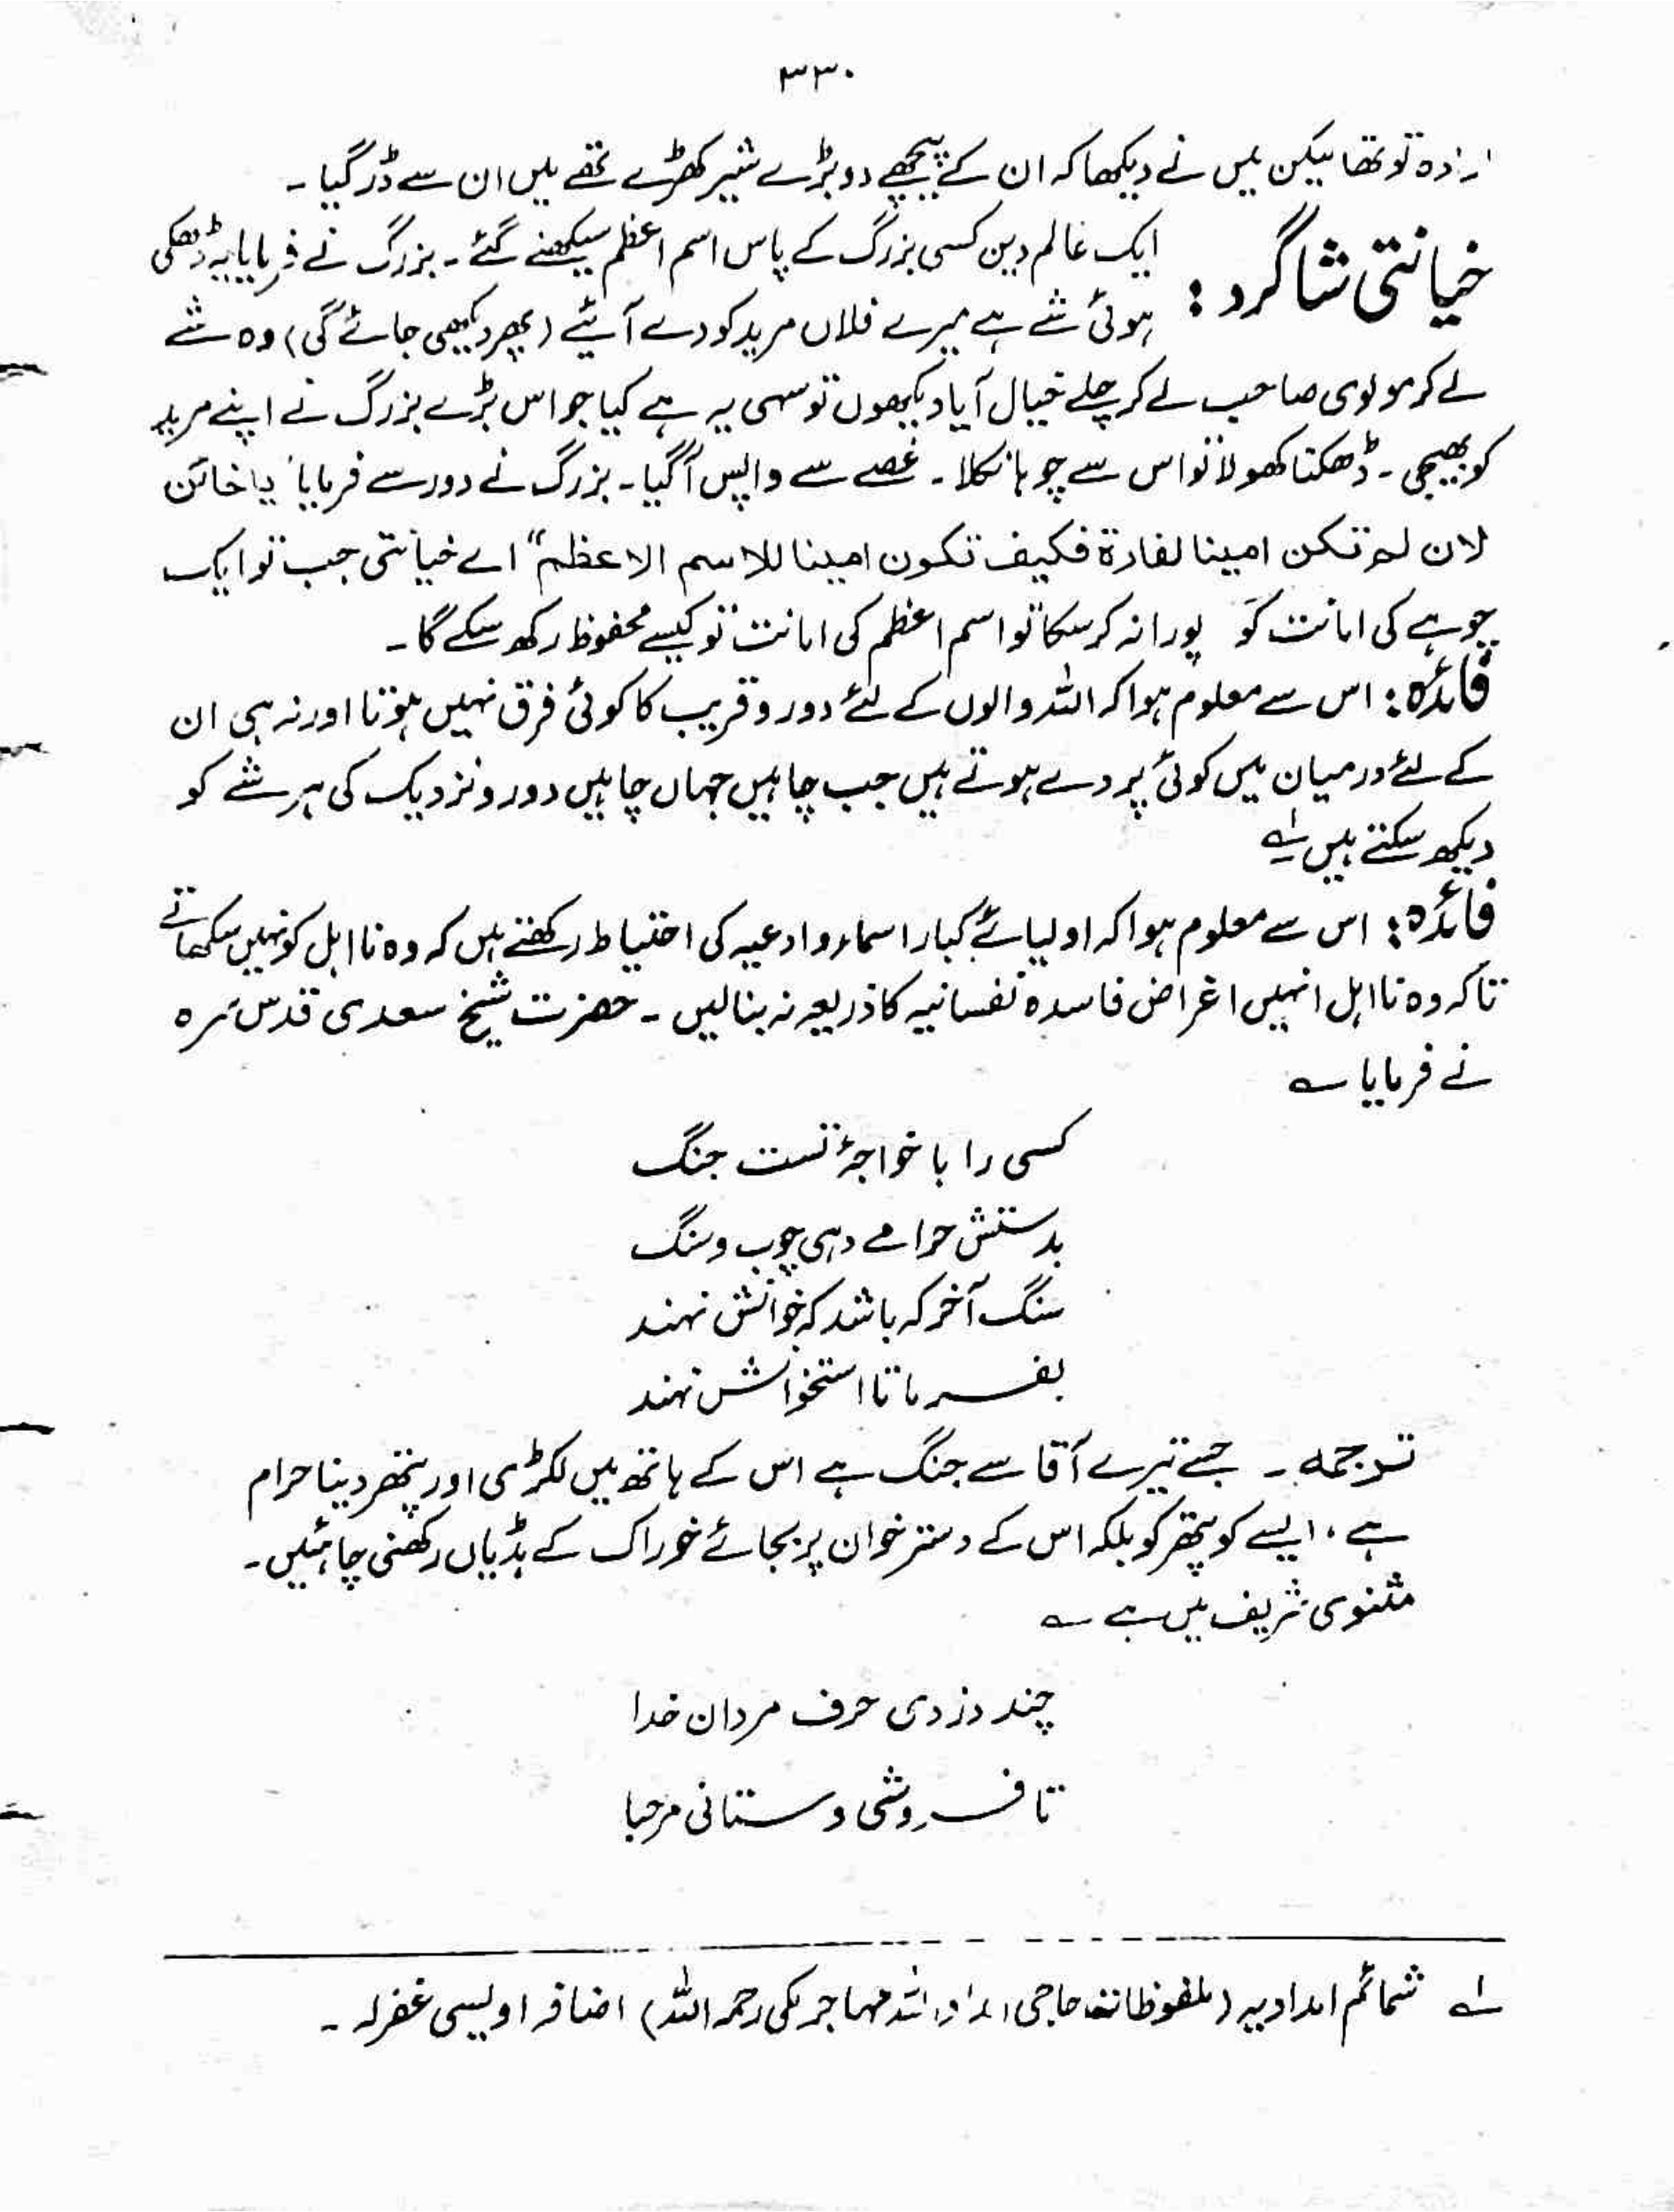 ۳۳۰
ارادہ تو تھا لیکن میں نے دیکھا کہ ان کے پیچھے دو بڑے شیر کھڑے تھے میں ان سے ڈر گیا۔
خیانتی شاگرد :
ایک عالم دین کسی بزرگ کے پاس اسم اعظم سیکھنے گئے۔ بزرگ نے فرمایا یہ ڈھکی
ہوئی شے ہے میرے فلاں مرید کو دے آئیے (پھر دیکھی جائے گی) وہ شے
لے کر مولوی صاحب لے کر چلے خیال آیا دیکھوں تو سہی یہ ہے کیا جو اس بڑے بزرگ نے اپنے مرید
کو بھیجی۔ ڈھکنا کھولا تو اس سے چوہا نکلا۔ غصے سے واپس آگیا۔ بزرگ نے دور سے فرمایا ’یا خائن
لان لم تکن امینا لفارۃ فکیف تکون امینا للاسم الاعظم“ اے خیانتی جب تو ایک
چوہے کی امانت کو پورا نہ کر سکا تو اسم اعظم کی امانت تو کیسے محفوظ رکھ سکے گا۔
فائدہ: اس سے معلوم ہوا کہ اللہ والوں کے لئے دور و قریب کا کوئی فرق نہیں ہوتا اور نہ ہی ان
کے لئے درمیان میں کوئی پردے ہوتے ہیں جب چاہیں جہاں چاہیں دور و نزدیک کی ہر شے کو
دیکھ سکتے ہیں ؎۱
فائدہ: اس سے معلوم ہوا کہ اولیائے کبار اسماء و ادعیہ کی احتیاط رکھتے ہیں کہ وہ نااہل کو نہیں سکھاتے
تاکہ وہ نااہل انہیں اغراض فاسدہ نفسانیہ کا ذریعہ نہ بنالیں۔ حضرت شیخ سعدی قدس سرہ
نے فرمایا ؎
کسی را با خواجۂ تست جنگ
بدستش حرامے دہی چوب و سنگ
سنگ آخر کہ باشد کہ خوانش نہند
بفرما تا استخوانش نہند
ترجمہ۔ جسے تیرے آقا سے جنگ ہے اس کے ہاتھ میں لکڑی اور پتھر دینا حرام
ہے، ایسے کو پتھر کو بلکہ اس کے دستر خوان پر بجائے خوراک کے ہڈیاں رکھنی چاہئیں۔
مثنوی شریف میں ہے ؎
چند دزدی حرف مردان خدا
تا فروشی و ستانی مرحبا
؎۱ شمائم امدادیہ (ملفوظات حاجی امداد اللہ مہاجر مکی رحمہ اللہ) اضافہ اویسی غفرلہ۔